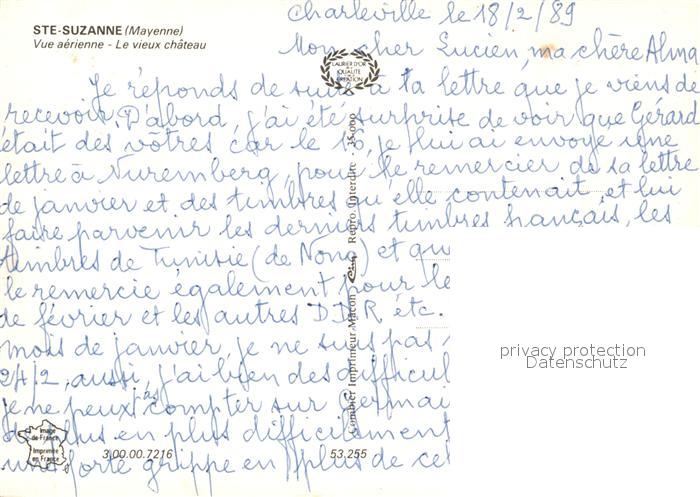 STE-SUZANNE (Mayenne)
Vue aérienne - Le vieux château
Charleville le 18/2/89
Mon cher Lucien, ma chère Alma
LAURIER D'OR
DE LA
QUALITÉ
CRÉATION
Je réponds de suite à ta lettre que je viens de
recevoir. D'abord, j'ai été surprise de voir que Gérard
était des vôtres car le 3, je lui ai envoyé une
lettre à Nuremberg, pour le remercier de sa lettre
de janvier et des timbres qu'elle contenait, et lui
faire parvenir les derniers timbres français, les
timbres de Tunisie (de Nono) et qu
le remercie également pour le
de février et les autres DDR, etc.
mois de janvier, je ne suis pas
2/4/2, aussi, j'ai bien des difficul
je ne peux pas compter sur Germai
plus en plus difficilement
une forte grippe en plus de ce
Combier Imprimeur Macon Cim Repro. Interdite 35-000
privacy protection
Datenschutz
Image
de France
Imprimée
en France
3.00.00.7216
53.255